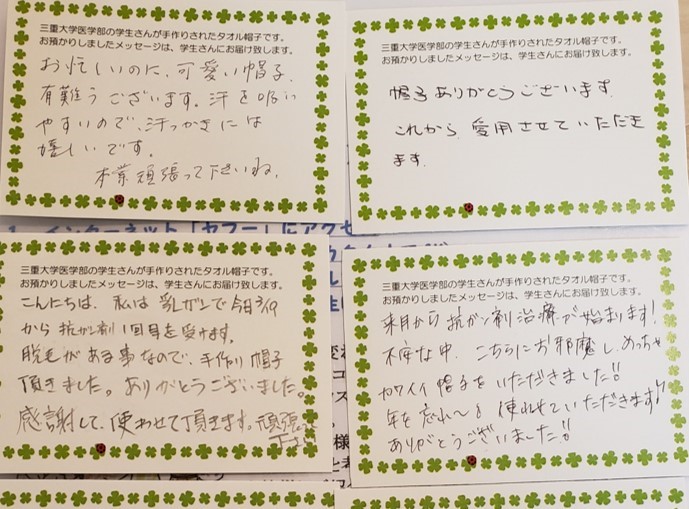 三重大学医学部の学生さんが手作りされたタオル帽子です。
お預かりしましたメッセージは、学生さんにお届け致します。
お忙しいのに、可愛い帽子、
有難うございます。汗を吸い
やすいので、汗っかきには
嬉しいです。
本業頑張って下さいね。
三重大学医学部の学生さんが手作りされたタオル帽子です。
お預かりしましたメッセージは、学生さんにお届け致します。
帽子ありがとうございます。
これから、愛用させていただき
ます。
インターネット「カフー」にアクセ
三重大学医学部の学生さんが手作りされたタオル帽子です。
お預かりしましたメッセージは、学生さんにお届け致します。
こんにちは、私は乳ガンで今日3/19
から抗がん剤1回目を受けます。
脱毛がある事なので、手作り帽子
頂きました。ありがとうございました。
感謝して、使わせて頂きます。頑張って
三重大学医学部の学生さんが手作りされたタオル帽子です。
お預かりしましたメッセージは、学生さんにお届け致します。
来月から抗ガン剤治療が始まります!
不安な中、こちらにお邪魔し、めっちゃ
カワイイ帽子をいただきました!!
年を忘れ〜る使わせていただきます!!
ありがとうございました!!